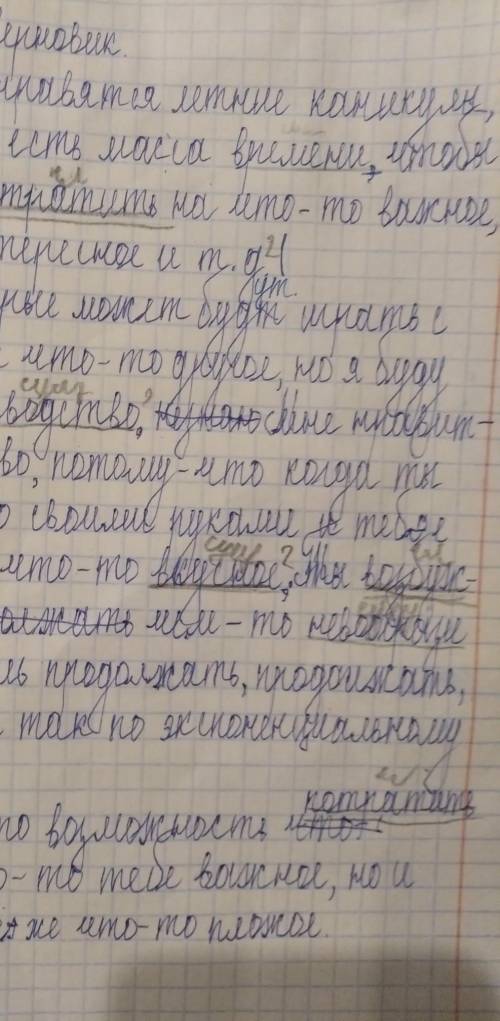 ерновик.
нравятся летние каникулы,
есть масса времени, чтобы
гл
тратить на что-то важное,
тересное и т.д
ут.
рые может будт играть с
что-то другое, но я буду
сущ
водство, незнаю Мне нравит-
во, потому-что когда ты
о своими руками и тебе
сущ ? гл
что-то вкусное, ты возбуж-
олжать чем-то невообрази
ль продолжать, продолжать,
так по экспоненциальному
потратить
по возможность что-
о-то тебе важное, но и
же что-то плохое.